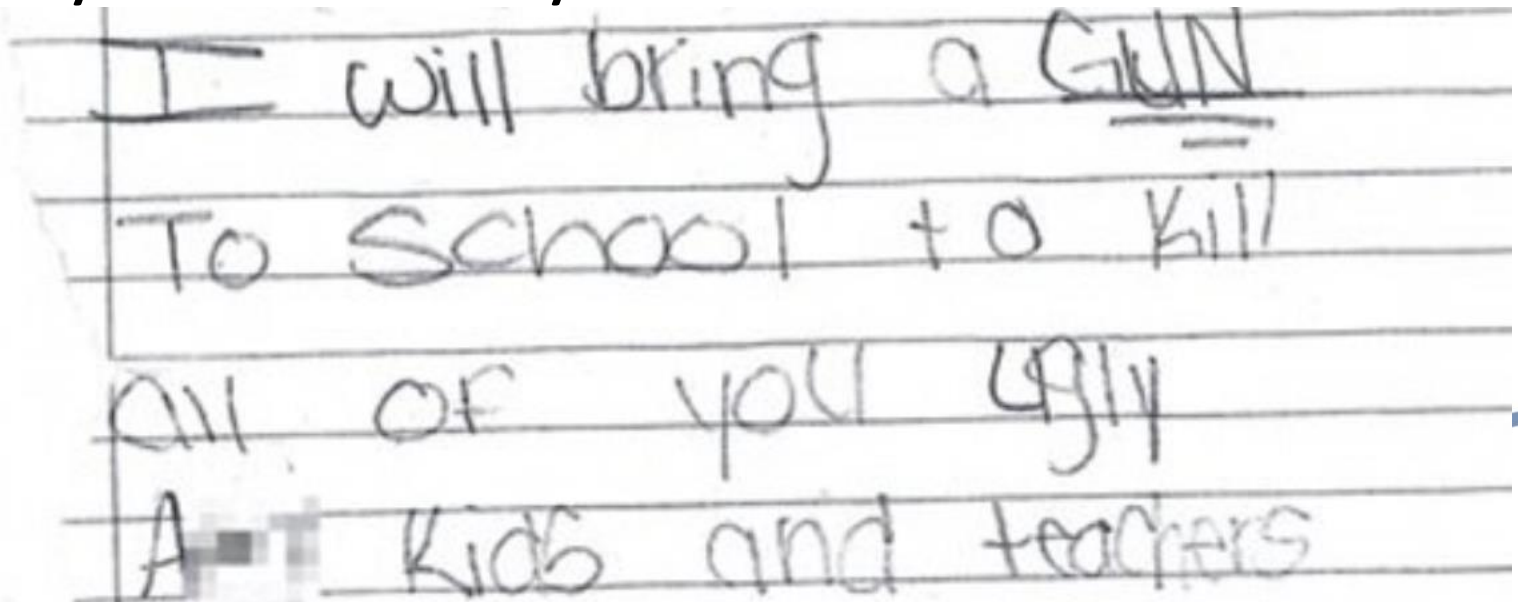 I will bring a GUN
To School to Kill
All of you ugly
A Kids and teachers